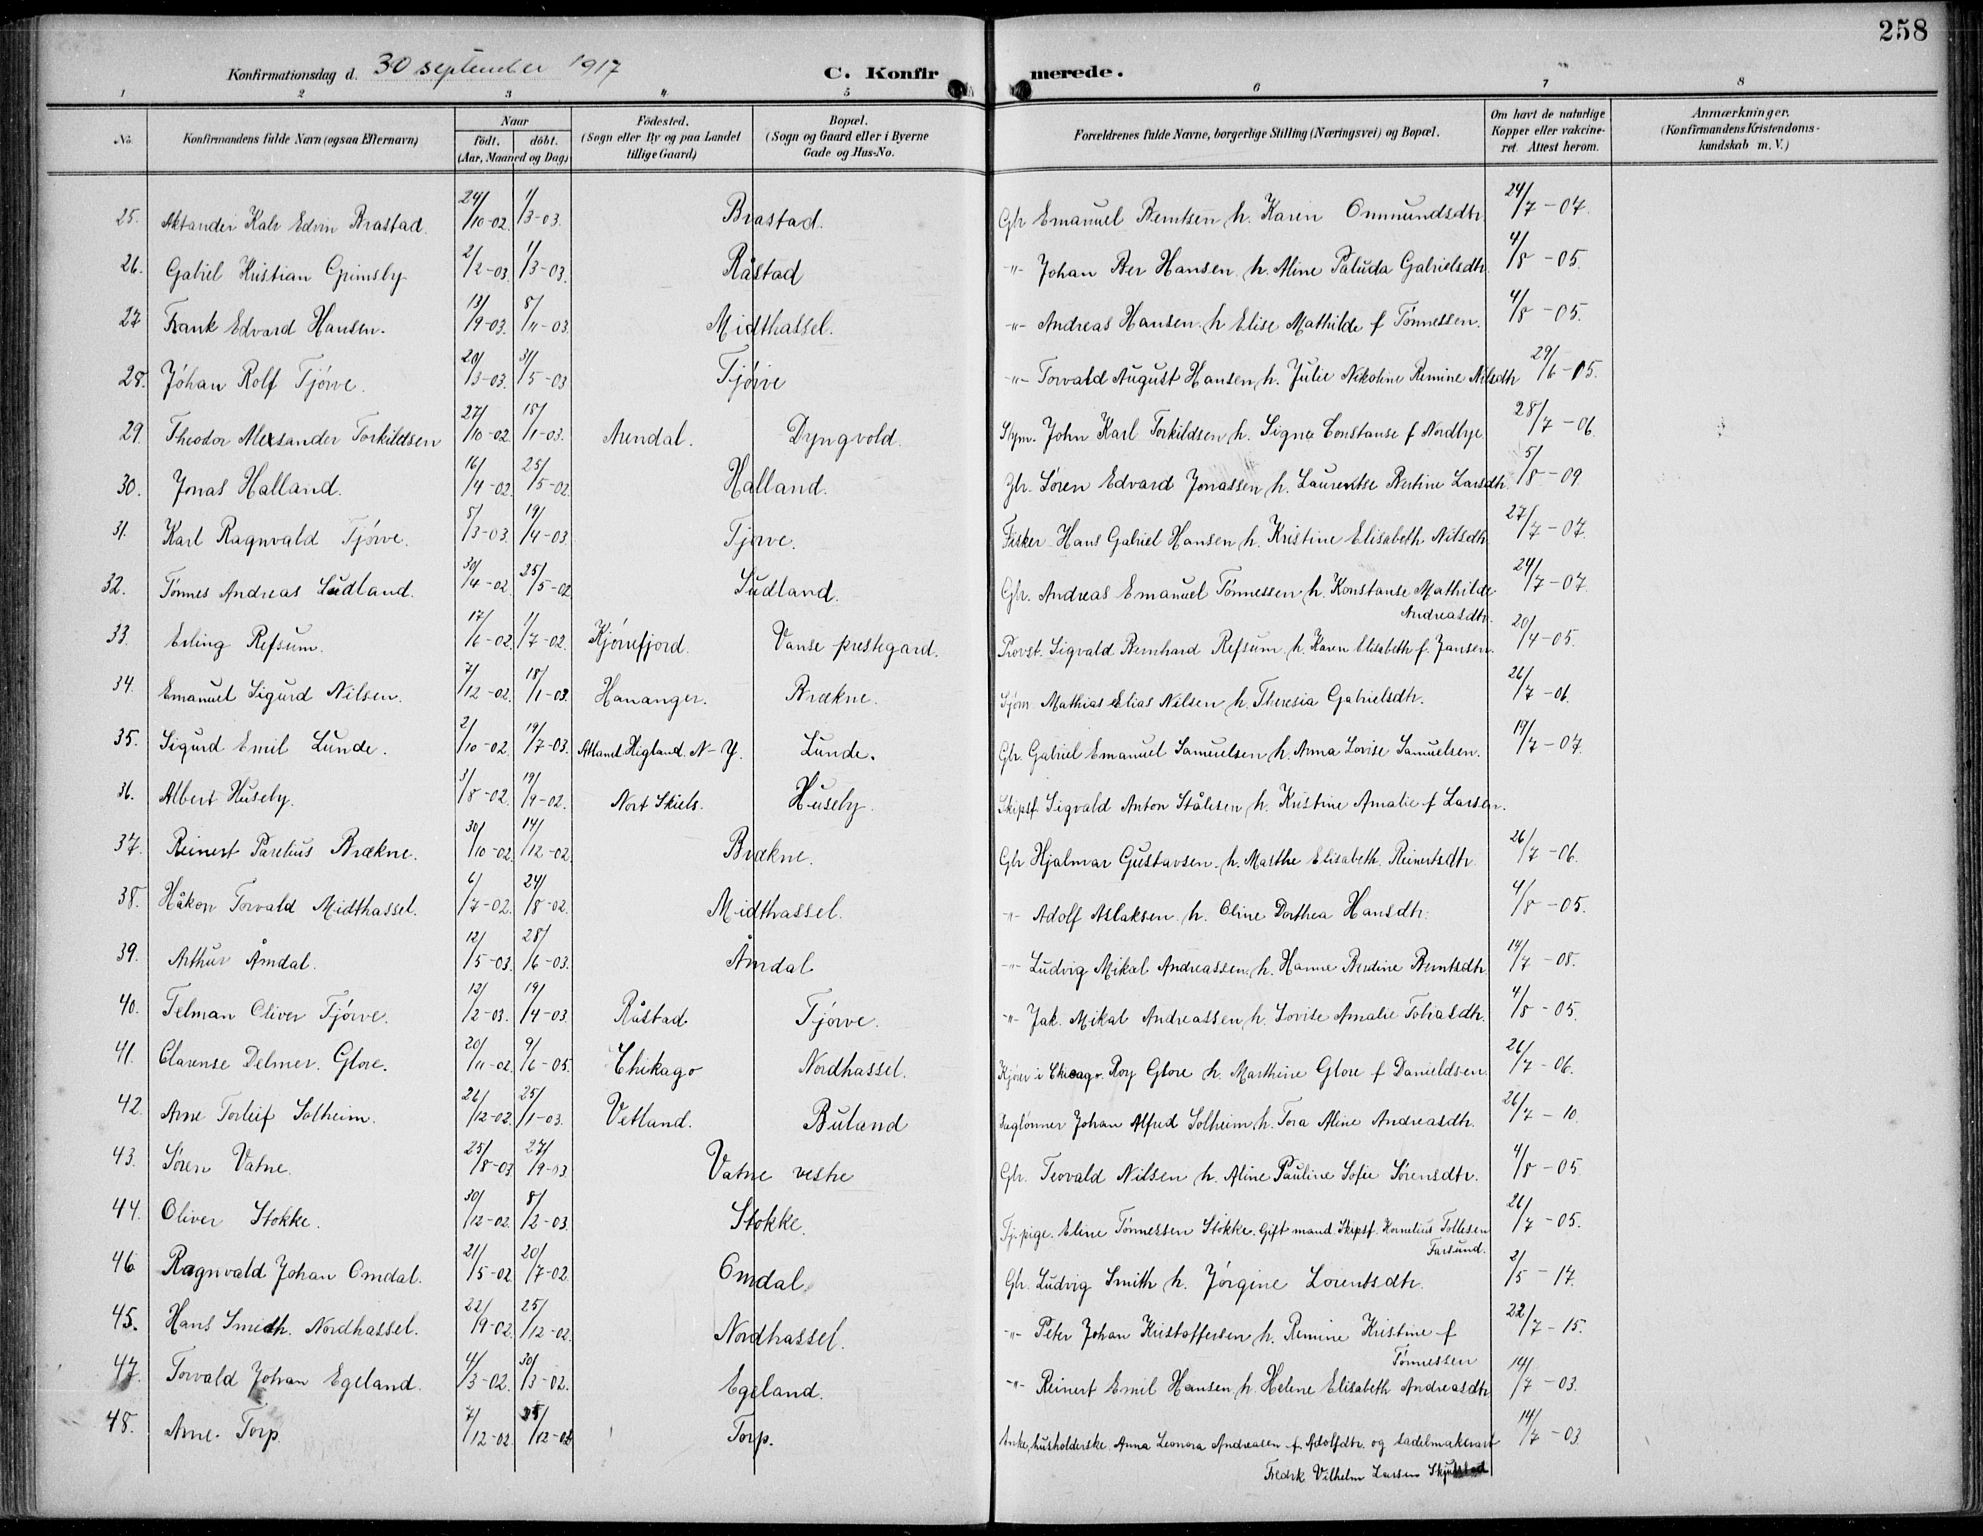 258
Konfirmationsdag d. 30 september 1917 C. Konfirmerede.
1 2 3 4 5 6 7 8
No. Konfirmandens fulde Navn (ogsaa Efternavn) Naar født. døbt. (Aar, Maaned og Dag) Fødested. (Sogn eller By og paa Landet tillige Gaard) Bopæl. (Sogn og Gaard eller i Byerne Gade og Hus-No. Forældrenes fulde Navne, borgerlige Stilling (Næringsvei) og Bopæl. Om havt de naturlige Kopper eller vaccineret. Attest herom. Anmærkninger. (Konfirmandens Kristendomskundskab m. V.)
25. Edvin Brastad. 24/10-02. 1/3-03. Brastad. Gbr Emanuel Berntsen h. Karen Ommundsdtr. 24/7-07.
26. Gabriel Kristian Grimsby 2/2-03. 1/3-03. Råstad -"- Johan Ber Hansen h. Aline Paluda Gabrielsdtr. 4/8-05.
27 Frank Edvard Hansen. 13/9-03. 8/11-03. Midthassel. -"- Andreas Hansen h Elise Mathilde f Tønnessen. 4/8-05.
28. Johan Rolf Tjørve. 20/3-03. 31/5-03 Tjørve -"- Torvald August Hansen h. Julie Nikoline Remine Nilsdtr 29/6-05.
29. Theodor Alexsander Torkildsen 27/10-02 18/1-03. Arendal. Dyngvold. Stym. John Karl Torkildsen h. Signe Constanse f Nordbye. 28/7-06.
30. Jonas Halland. 16/4-02. 25/5-02. Halland. Gbr. Søren Edvard Jonassen h. Laurentse Bertine Larsdtr. 5/8-09
31. Karl Ragnvald Tjørve. 8/3-03. 19/4-03 Tjørve. Fisker Hans Gabriel Hansen h. Kristine Elisabeth Nilsdtr. 27/7-07.
32. Tønnes Andreas Sudland. 30/4-02. 25/5-02 Sudland. Gbr. Andreas Emanuel Tønnessen h. Konstanse Mathilde Andreasdtr. 24/7-07.
33. Erling Refsum. 17/6-02. 1/7-02. Kjørrefjord. Vanse prestegard. Provst. Sigvald Bernhard Refsum h. Karen Elisabeth f. Jansen. 20/4-05.
34. Emanuel Sigurd Nilsen. 7/12-02. 18/1-03. Hananger. Brækne. Sjøm Mathias Elias Nilsen h. Theresia Gabrielsdtr. 26/7-06.
35. Sigurd Emil Lunde. 2/10-02. 19/7-03. N-Y. Lunde. Gbr Gabriel Emanuel Samuelsen h. Anna Lovise Samuelsen. 19/7-07.
36. Albert Huseby. 3/8-02. 19/9-02. Nort Skiels. Huseby. Skipsf. Sigvald Anton Stålesen h. Kristine Amalie f Larsen.
37. Reinert Parelius Brækne. 30/10-02. 14/12-02. Brækne. Gbr Hjalmar Gustavsen h. Marthe Elisabeth Reinertsdtr 26/7-06.
38. Håkon Torvald Midthassel. 6/7-02. 24/8-02. Midthassel. -"- Adolf Aslaksen h. Oline Dorthea Hansdtr. 4/8-05.
39. Arthur Åmdal. 12/5-03. 28/6-03. Åmdal -"- Ludvig Mikal Andreassen h. Hanne Berdine Berntsdtr 14/7-08.
40. Telman Oliver Tjørve. 12/2-03. 19/4-03. Råstad Tjørve. -"- Jak. Mikal Andreassen h. Lovise Amalie Tobiasdtr. 4/8-05.
41. Clarense Delmer. Glore. 20/11-02. 9/6-05. Chikago Nordhassel. i Chicago. Roy Glore h. Marthine Glore f Danieldsen. 26/7-06.
42. Arne Torleif Solheim. 26/12-02. 25/1-03. Vetland. Buland Daglønner Johan Alfred Solheim h. Tora Aline Andreasdtr. 26/7-10
43. Søren Vatne. 25/8-03 27/9-03 Vatne vestre Gbr. Teovald Nilsen h. Aline Pauline Sofie Sørensdtr. 4/8-05
44. Oliver Stokke. 30/12-02. 8/2-03 Stokke. Tj. pige. Eline Tønnessen Stokke. Gift mand Skipsf. Kornelius Tollesen Farsund. 26/7-05.
46 Ragnvald Johan Omdal. 21/5-02 20/7-02 Omdal Gbr. Ludvig Smith h. Jørgine Lorentsdtr. 2/5-17.
45. Hans Smedh. Nordhassel. 22/9-02. 25/12-02. Nordhassel. -"- Peter Johan Kristoffersen h. Remine Kristine f Tønnessen 22/7-15.
47. Torvald Johan Egeland. 4/3-02. 30/3-02. Egeland. -"- Reinert Emil Hansen h. Helene Elisabeth Andreasdtr 14/7-03.
48. Arne. Torp 7/12-02. 25/12-02 Torp. Enke, husholderske. Anna Leonora Andreasen f. Adolfdtr. og Fredrk Vilhelm Larsen 14/7-03